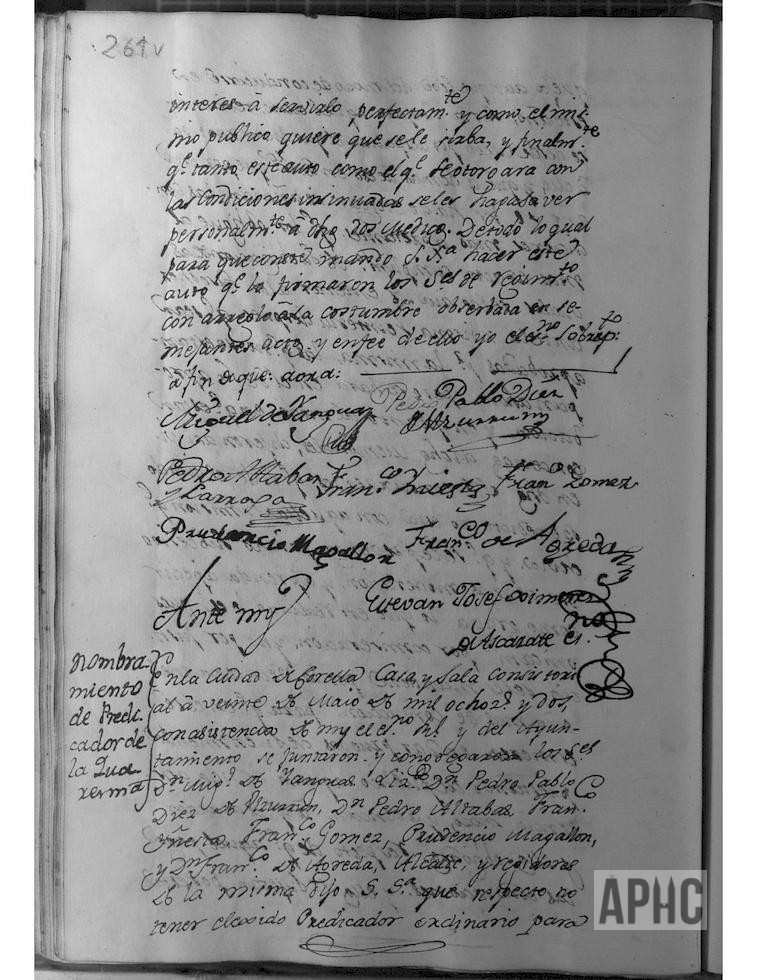 261v
interes â servirlo perfectam.te y como el mis-
mo publico quiere que se le sirba, y finalm.te
q.e tanto este auto como el q.e se otorgara con
las Condiciones insinuadas se les haga saver
personalm.te â dhos dos Medicos. De todo lo qual
para que conste mando S. S.a hacer este
auto q.e lo firmaron los S.es de Regim.to
con arreglo â la costumbre observada en se-
mejantes actos y en fee de ello yo el es.no
a fin de que: aora:
Miguel de Yanguas
Pedro Pablo Diez
Uzurrun
Pedro Altabas
y Larraga
Fran.co Yñesta
Fran.co Gomez
Prudencio Magallon
Fran.co de Agreda
Ante my
Estevan Josef Ximenez
de Ascarate es.no
Nombra-
miento
de Predi-
cador de
la Qua-
resma
En la Ciudad de Corella Casa y Sala Consistori
al â veinte de Maio de mil ochoz.s y dos,
con asistencia de my el es.no R.l y del Ayun-
tamiento se juntaron y congregaron los S.es
D.n Mig.l de Yanguas Liz.do D.n Pedro Pablo
Diez de Uzurrun, D.n Pedro Altabas Fran.co
Yñesta, Fran.co Gomez, Prudencio Magallon,
y D.n Fran.co de Agreda, Alcalde, y regidores
de la misma dijo S. S.a que respecto no
tener elexido Predicador ordinario para
APHC